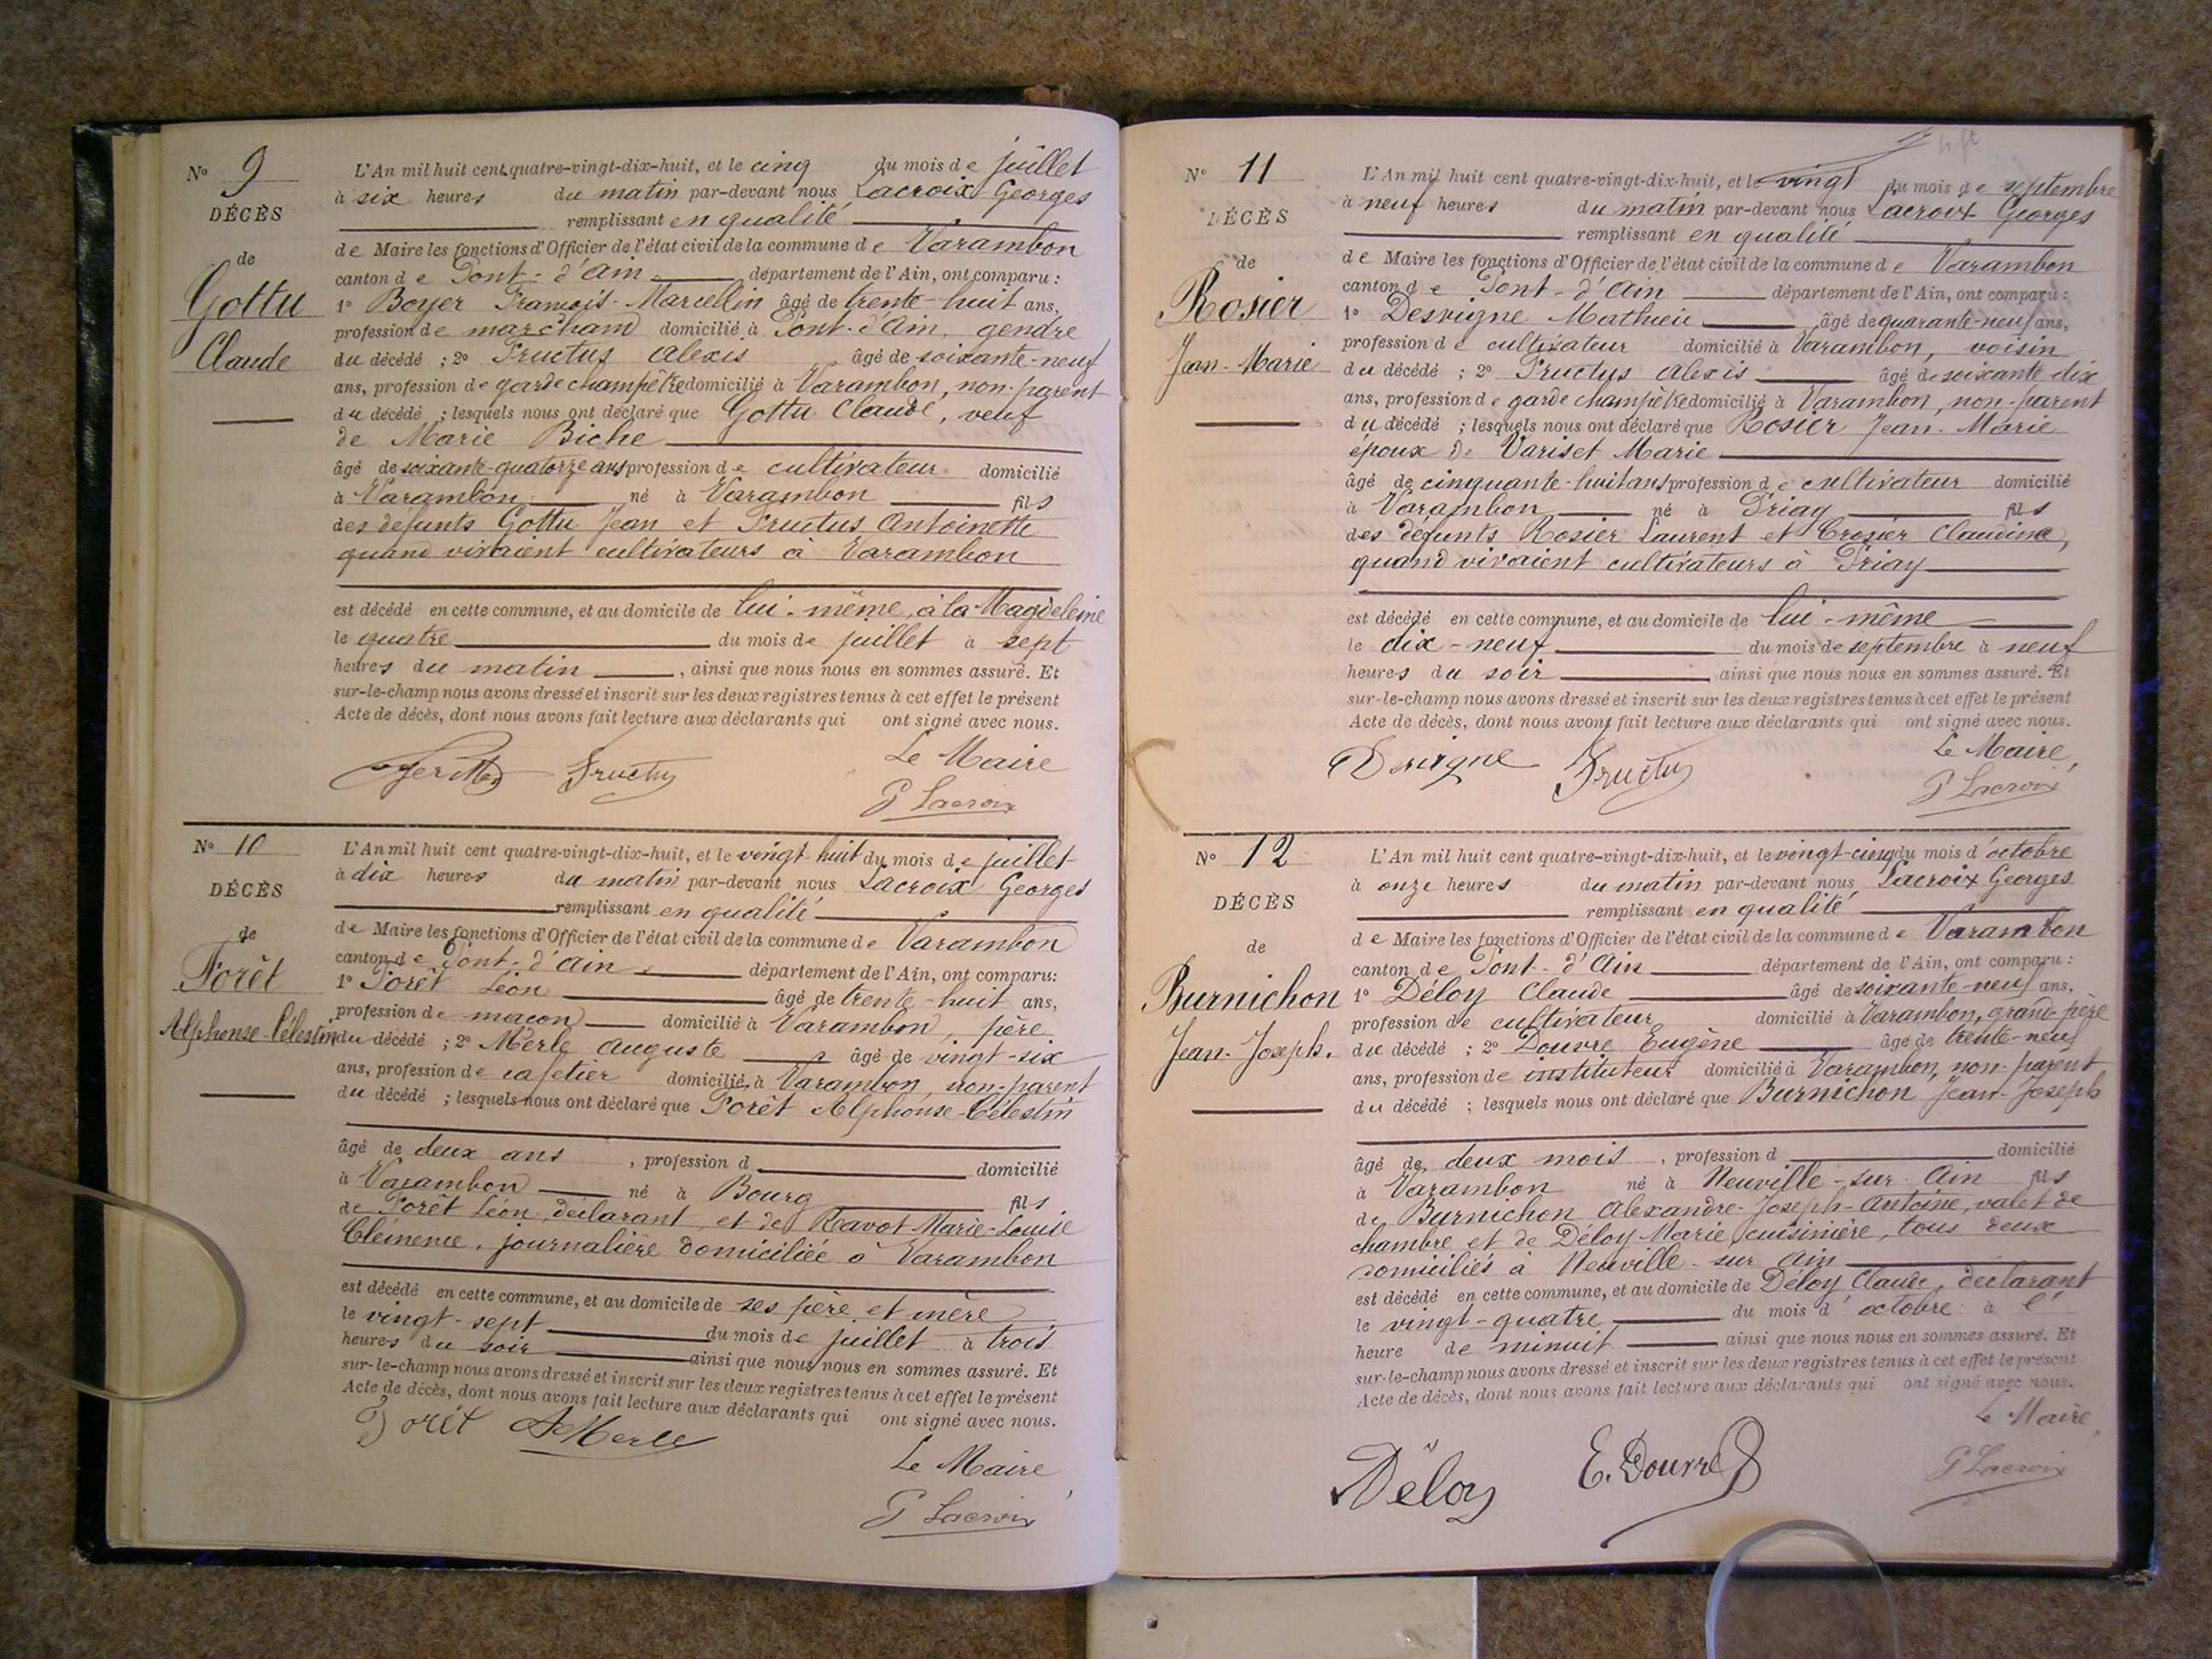 N° 9
DÉCÈS
de
Gottu
Claude
L'An mil huit cent quatre-vingt-dix-huit, et le cinq du mois de juillet
à six heures du matin par-devant nous Lacroix Georges
remplissant en qualité
de Maire les fonctions d'Officier de l'état civil de la commune de Varambon
canton de Pont-d'Ain département de l'Ain, ont comparu :
1° Boyer François-Marcellin âgé de trente-huit ans,
profession de marchand domicilié à Pont-d'Ain, gendre
du décédé ; 2° Fructus Alexis âgé de soixante-neuf
ans, profession de garde champêtre domicilié à Varambon, non-parent
du décédé ; lesquels nous ont déclaré que Gottu Claude, veuf
de Marie Biche
âgé de soixante-quatorze ans profession de cultivateur domicilié
à Varambon né à Varambon fils
des défunts Gottu Jean et Fructus Antoinette
quand vivaient cultivateurs à Varambon
est décédé en cette commune, et au domicile de lui-même, à la Magdeleine
le quatre du mois de juillet à sept
heures du matin, ainsi que nous nous en sommes assuré. Et
sur-le-champ nous avons dressé et inscrit sur les deux registres tenus à cet effet le présent
Acte de décès, dont nous avons fait lecture aux déclarants qui ont signé avec nous.
Fructus Le Maire
G Lacroix
N° 10
DÉCÈS
de
Forêt
Alphonse-Célestin
L'An mil huit cent quatre-vingt-dix-huit, et le vingt huit du mois de juillet
à dix heures du matin par-devant nous Lacroix Georges
remplissant en qualité
de Maire les fonctions d'Officier de l'état civil de la commune de Varambon
canton de Pont-d'Ain département de l'Ain, ont comparu:
1° Forêt Léon âgé de trente-huit ans,
profession de maçon domicilié à Varambon, père
du décédé ; 2° Merle Auguste âgé de vingt-six
ans, profession de cafetier domicilié à Varambon, non-parent
du décédé ; lesquels nous ont déclaré que Forêt Alphonse-Célestin
âgé de deux ans, profession d domicilié
à Varambon né à Bourg fils
de Forêt Léon, déclarant, et de Ravot Marie-Louise
Clémence, journalière domiciliée à Varambon
est décédé en cette commune, et au domicile de ses père et mère
le vingt-sept du mois de juillet à trois
heures du soir ainsi que nous nous en sommes assuré. Et
sur-le-champ nous avons dressé et inscrit sur les deux registres tenus à cet effet le présent
Acte de décès, dont nous avons fait lecture aux déclarants qui ont signé avec nous.
Forêt A Merle
Le Maire
G Lacroix
N° 11
DÉCÈS
de
Rosier
Jean-Marie
L'An mil huit cent quatre-vingt-dix-huit, et le vingt du mois de septembre
à neuf heures du matin par-devant nous Lacroix Georges
remplissant en qualité
de Maire les fonctions d'Officier de l'état civil de la commune de Varambon
canton de Pont-d'Ain département de l'Ain, ont comparu :
1° Desvigne Mathieu âgé de quarante-neuf ans,
profession de cultivateur domicilié à Varambon, voisin
du décédé ; 2° Fructus Alexis âgé de soixante dix
ans, profession de garde champêtre domicilié à Varambon, non-parent
du décédé ; lesquels nous ont déclaré que Rosier Jean-Marie
époux de Variset Marie
âgé de cinquante-huit ans profession de cultivateur domicilié
à Varambon né à Priay fils
des défunts Rosier Laurent et Crosier Claudine,
quand vivaient cultivateurs à Priay
est décédé en cette commune, et au domicile de lui-même
le dix-neuf du mois de septembre à neuf
heures du soir ainsi que nous nous en sommes assuré. Et
sur-le-champ nous avons dressé et inscrit sur les deux registres tenus à cet effet le présent
Acte de décès, dont nous avons fait lecture aux déclarants qui ont signé avec nous.
Desvigne Fructus Le Maire,
G Lacroix
N° 12
DÉCÈS
de
Burnichon
Jean-Joseph.
L'An mil huit cent quatre-vingt-dix-huit, et le vingt-cinq du mois d'octobre
à onze heures du matin par-devant nous Lacroix Georges
remplissant en qualité
de Maire les fonctions d'Officier de l'état civil de la commune de Varambon
canton de Pont-d'Ain département de l'Ain, ont comparu :
1° Déloy Claude âgé de soixante-neuf ans,
profession de cultivateur domicilié à Varambon, grand-père
du décédé ; 2° Douvre Eugène âgé de trente-neuf
ans, profession de instituteur domicilié à Varambon, non-parent
du décédé ; lesquels nous ont déclaré que Burnichon Jean-Joseph
âgé de deux mois, profession d domicilié
à Varambon né à Neuville-sur-Ain fils
de Burnichon Alexandre-Joseph-Antoine, valet de
chambre et de Déloy Marie, cuisinière, tous deux
domiciliés à Neuville-sur-Ain
est décédé en cette commune, et au domicile de Déloy Claude, déclarant
le vingt-quatre du mois d'octobre à l'
heure de minuit ainsi que nous nous en sommes assuré. Et
sur-le-champ nous avons dressé et inscrit sur les deux registres tenus à cet effet le présent
Acte de décès, dont nous avons fait lecture aux déclarants qui ont signé avec nous.
Le Maire,
Déloy E. Douvre G Lacroix